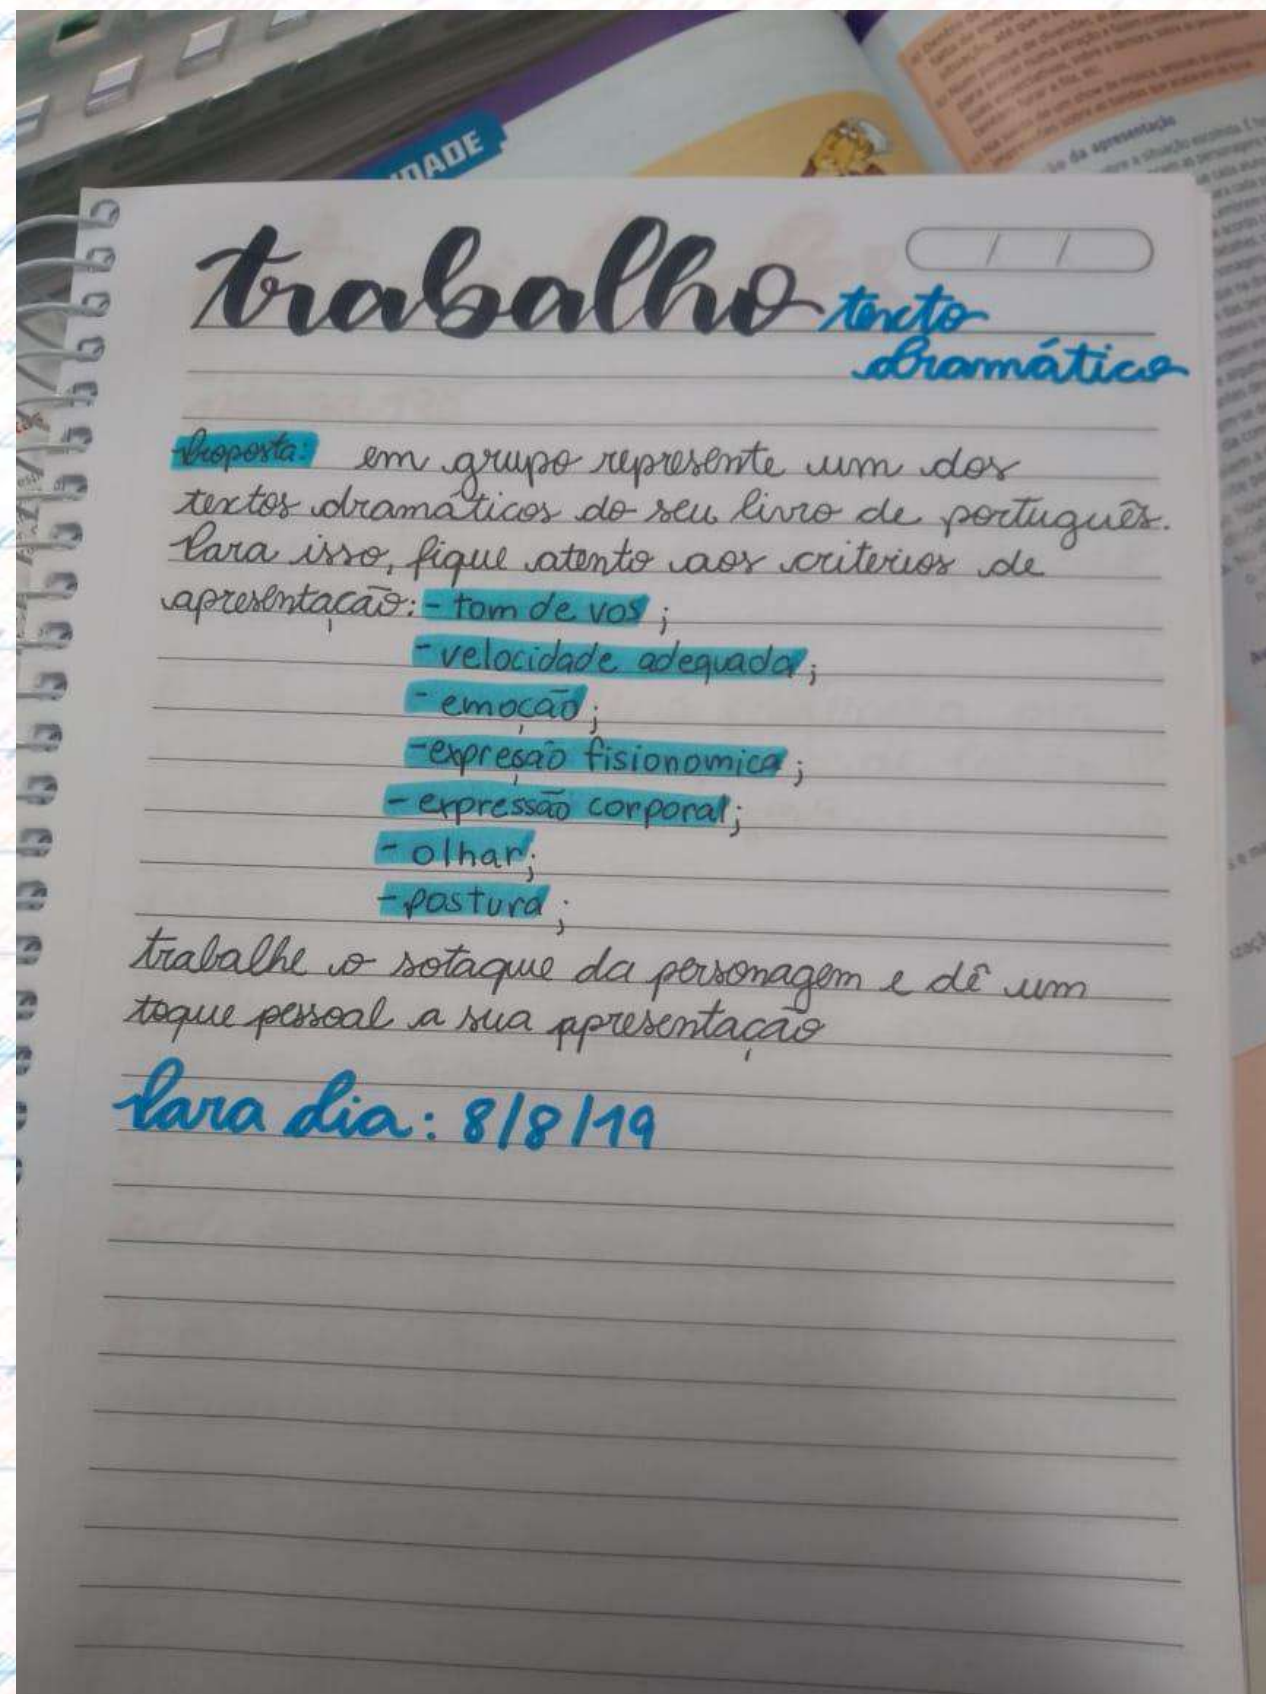 trabalho texto
dramático
Proposta: em grupo represente um dos
textos dramáticos do seu livro de português.
Para isso, fique atento aos criterios de
apresentação: - tom de vos;
- velocidade adequada;
- emoção;
- expreção fisionomica;
- expressão corporal;
- olhar;
- postura;
trabalhe o sotaque da personagem e dê um
toque pessoal a sua apresentação
Para dia: 8/8/19
da apresentação